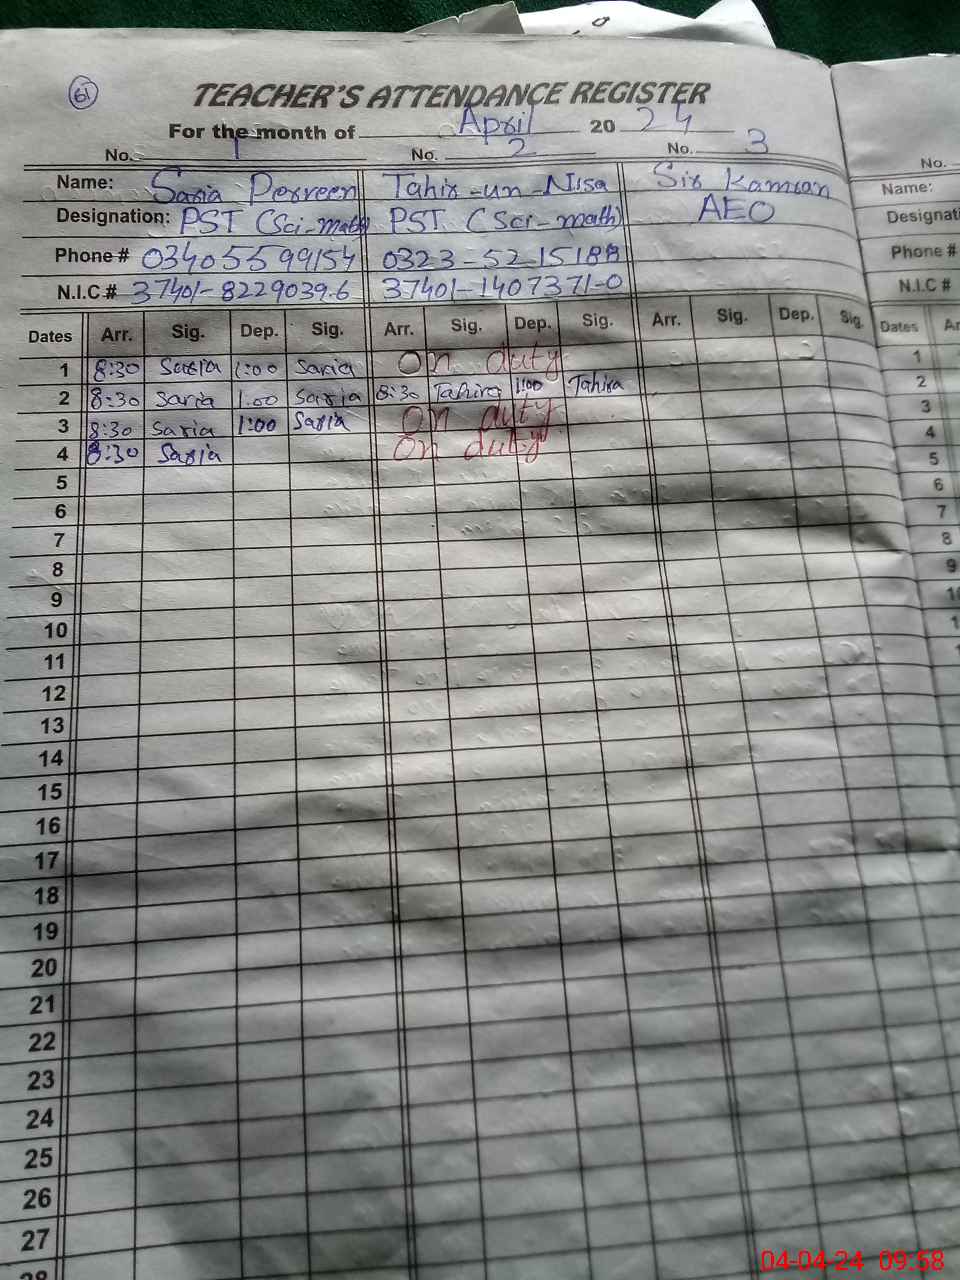 61
TEACHER'S ATTENDANCE REGISTER
For the month of April 2024
No. 1 No. 2 No. 3
Name: Saria Perveen Tahir-un-Nisa Sir Kamran
Designation: PST (Sci-math) PST (Sci-math) AEO
Phone # 03405599154 0323-5215188
N.I.C.# 37401-8229039-6 37401-1407371-0
Dates Arr. Sig. Dep. Sig. Arr. Sig. Dep. Sig. Arr. Sig. Dep. Sig.
1 8:30 Saria 1:00 Saria On duty
2 8:30 Saria 1:00 Saria 8:30 Tahira 1:00 Tahira
3 8:30 Saria 1:00 Saria On duty
4 8:30 Saria On duty
5
6
7
8
9
10
11
12
13
14
15
16
17
18
19
20
21
22
23
24
25
26
27
28
No.
Name:
Designati
Phone #
N.I.C #
Dates Ar
1
2
3
4
5
6
7
8
9
10
04-04-24 09:58